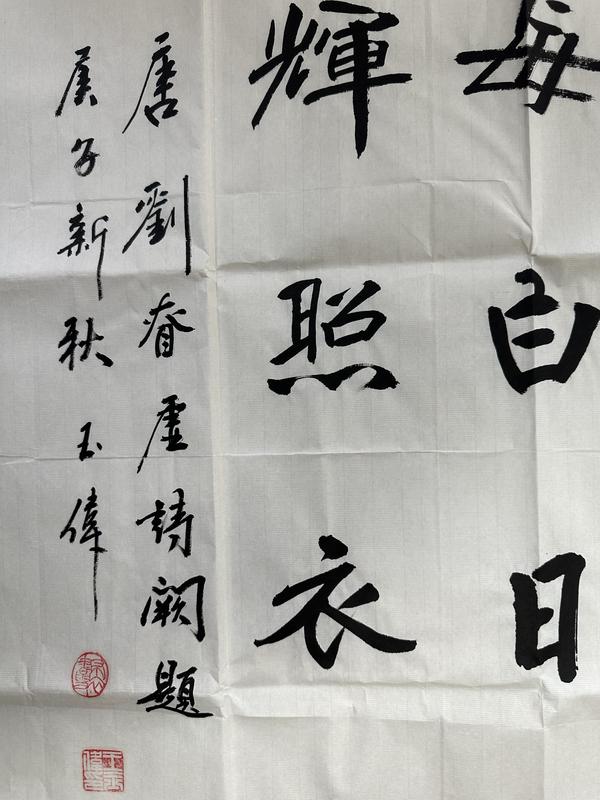 每白日
輝照衣
唐劉昚虛詩闕題
庚子新秋 玉偉